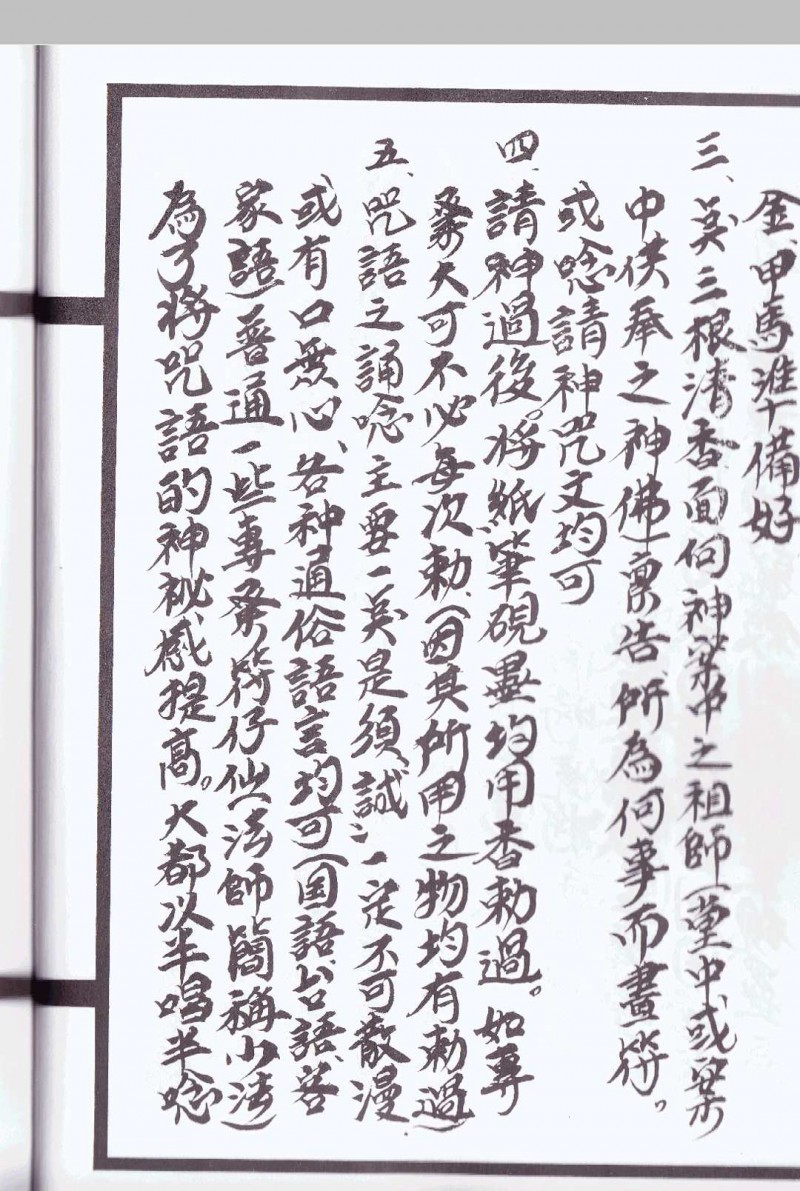 金、甲馬準備好
三、英三根清香面向神案中之祖師(堂中或案
中供奉之神佛)稟告所為何事而畫符。
或唸請神咒文均可
四、請神過後。將紙筆硯墨均用香勅過。如專
業大可不必每次勅、(因其所用之物均有勅過)
五、咒語之誦唸主要一英是須誠心一定不可散漫
或有口無心、各种通俗語言均可(国語、台語、客
家語)普通一些專業符仔仙(法師簡稱小法)
為了將咒語的神祕感提高。大都以半唱半唸